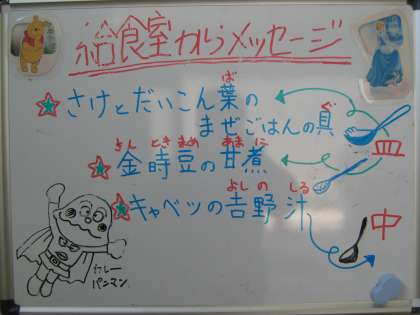 給食室からメッセージ
ば
さけとだいこん葉の
ぐ
まぜごはんの具
皿
きん ときまめ あまに
金時豆の甘煮
よしの しる
キャベツの吉野汁
中
カレー
パンマン